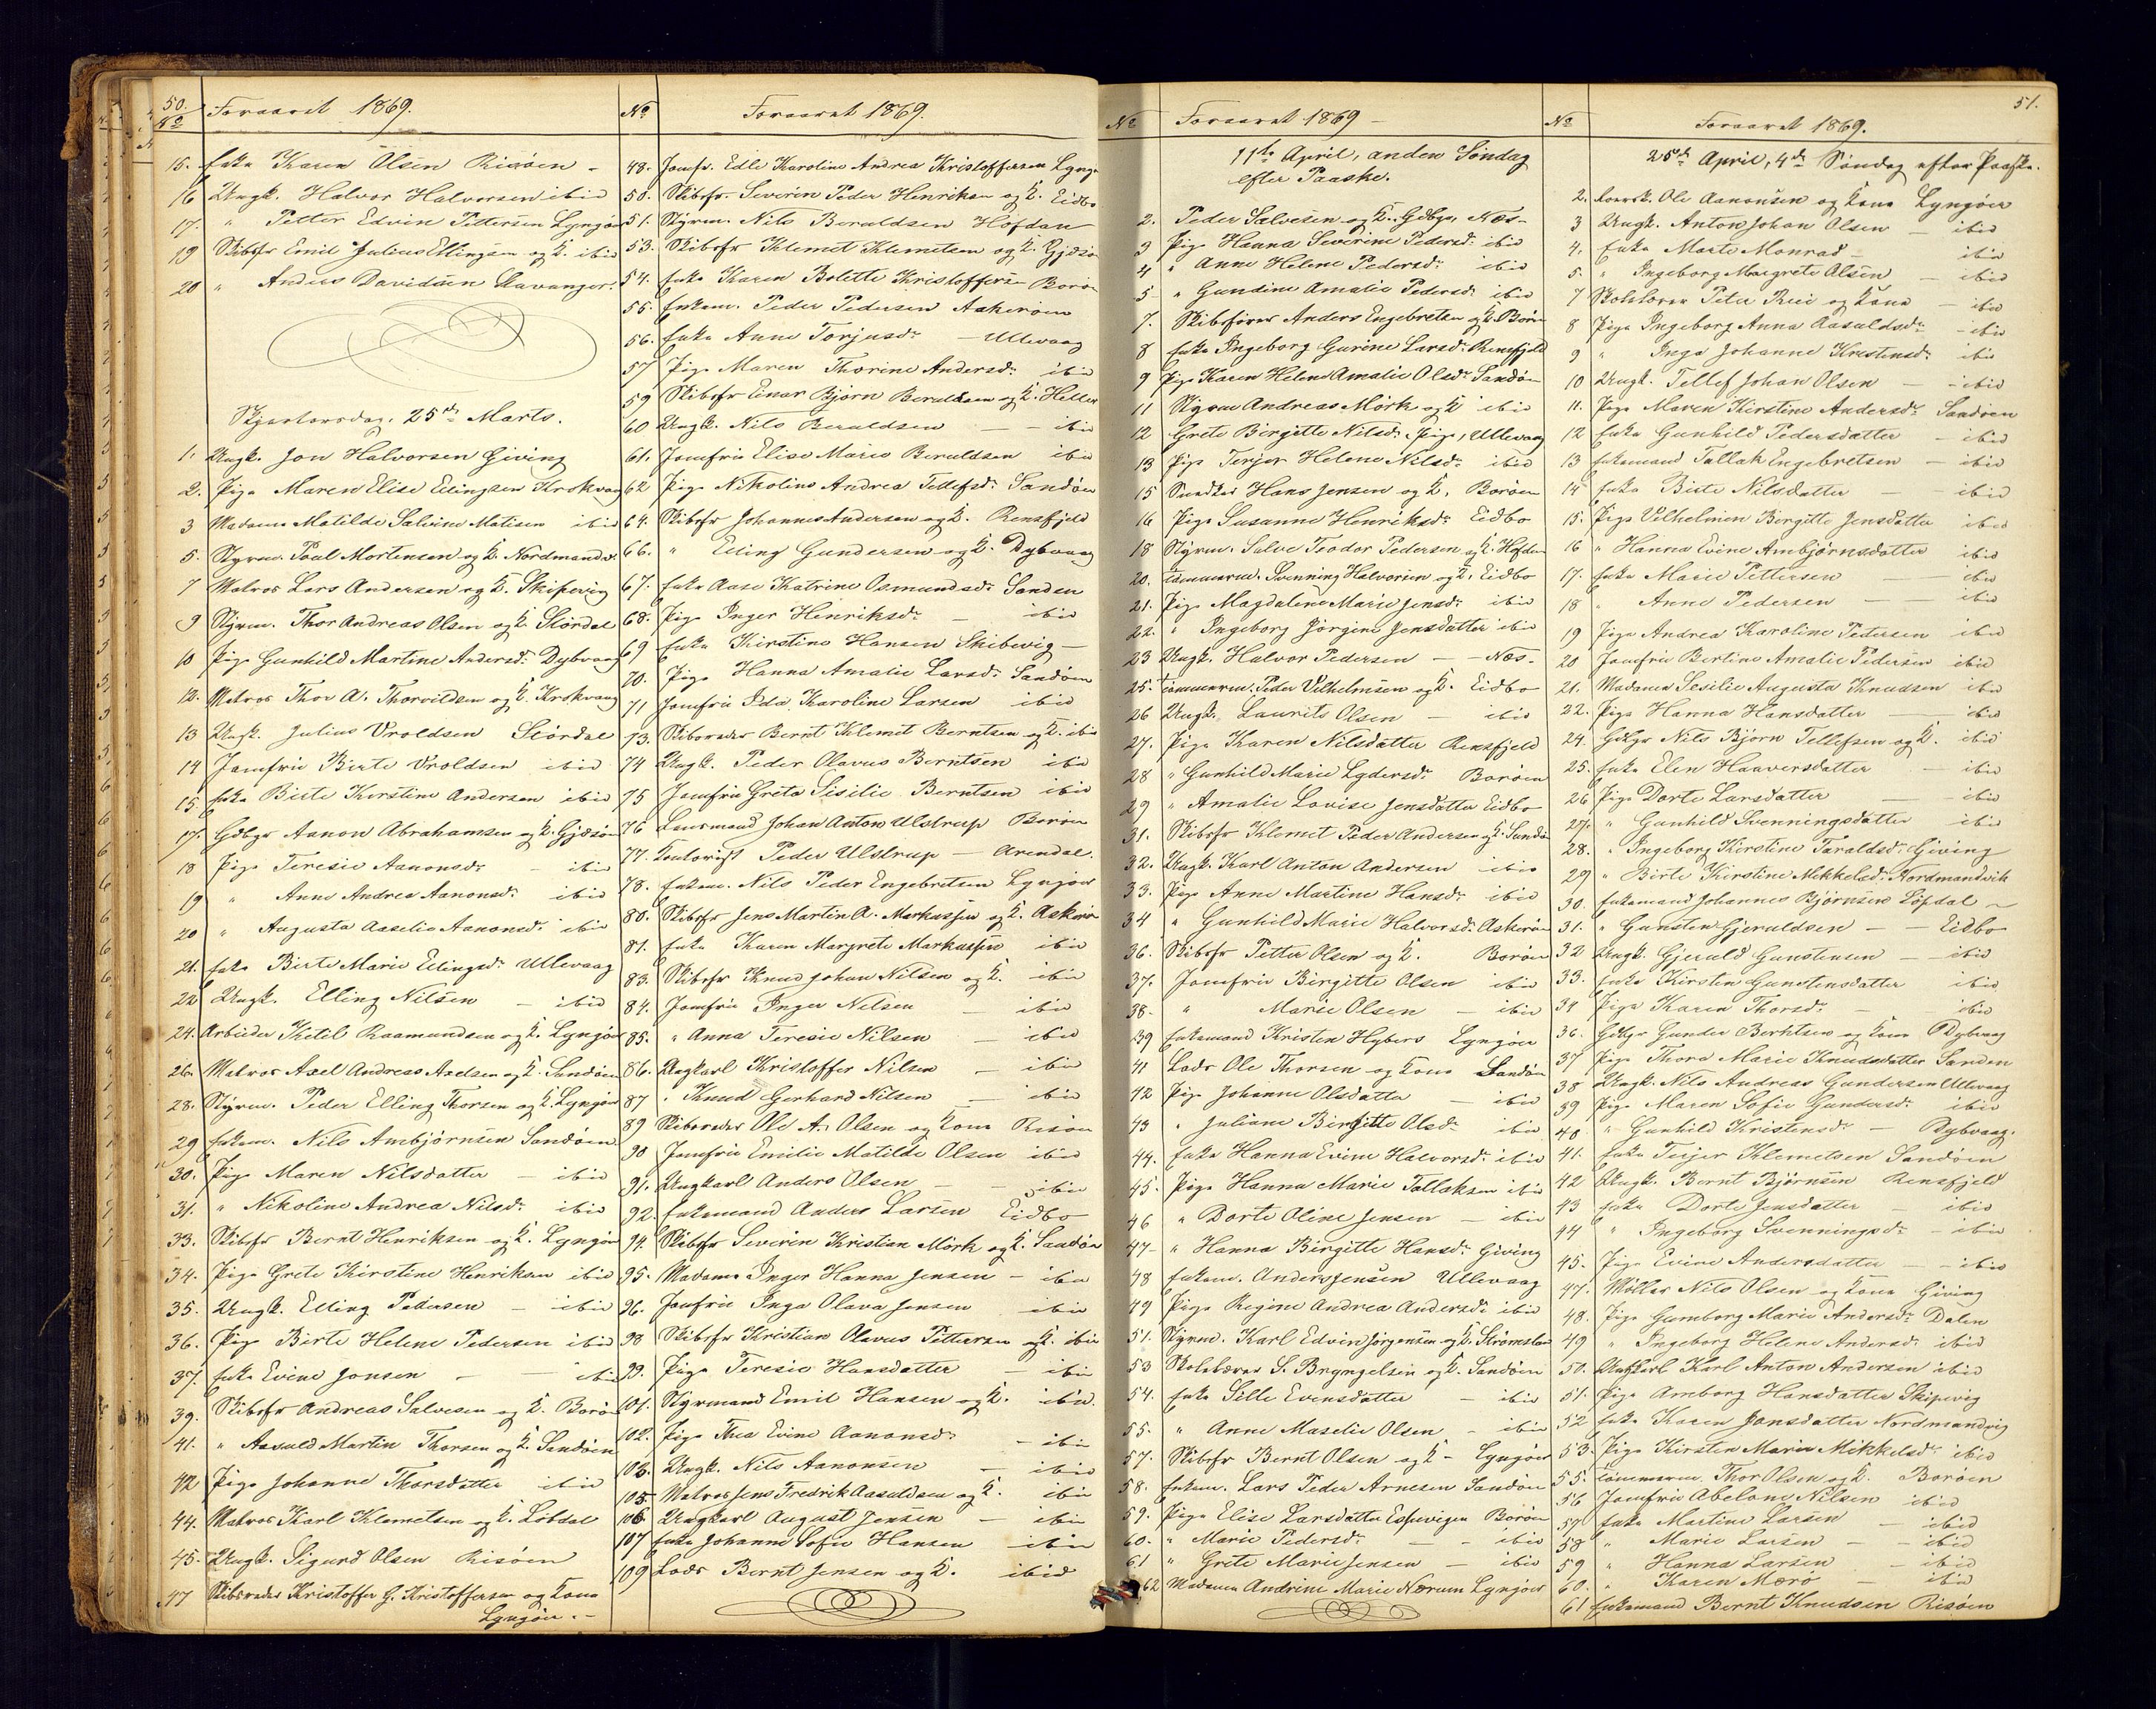 50.
No Foraaret 1869.
15. Enke Karen Olsen Risøen -
16 Ungk. Halvor Halvorsen ibid
17. " Petter Edvin Pettersen Lyngøer
19 Skibsfr Emil Julius Ellingsen og K. ibid
20 " Anders Davidsen Stavanger.
Skjærtorsdag, 25de Marts.
1. Ungk. Jon Halvorsen Giving
2. Pige Maren Elise Ellingsen Krokvaag
3 Madame Matilde Salvine Matisen ibid
5. Styrm. Poul Mortensen og K. Nordmandv.
7 Matros Lars Andersen og K. Skipevig
9 Styrm. Thor Andreas Olsen og K. Slørdal
10 Pige Gunhild Martine Andersdr Dybvaag
12. Matros Thor A. Thorvildsen og K. Krokvaag
13 Ungk. Julius Vroldsen Slørdal
14 Jomfru Birte Vroldsen ibid
15. Enke Birte Kirstine Andersen ibid
17. Gdbgr Aanon Abrahamsen og K. Gjæsøen
18 Pige Teresie Aanonsdr - ibid
19 " Anne Andrea Aanonsdr ibid
20 " Augusta Aaselie Aanonsdr ibid
21. Enke Birte Marie Ellingsdr Ullevaag
22 Ungk. Elling Nilsen - ibid
24. Arbeider Ketil Raamundsen og K. Lyngøer
26. Matros Axel Andreas Axelsen og K. Sandøen
28. Styrm. Peder Elling Thorsen og K. Lyngøer
29 Enkem. Nils Ambjørnsen Sandøen
30. Pige Maren Nilsdatter - ibid
31. " Nikoline Andrea Nilsdr ibid
33. Skibsfr Bernt Henriksen og K. Lyngøer
34. Pige Grete Kirstine Henriksen ibid
35. Ungk. Elling Pedersen - ibid
36. Pige Birte Helene Pedersen ibid
37. Enke Evine Jonsen - - ibid
39. Skibsfr Andreas Salvesen og K. Borøen
41. " Aasuld Martin Thorsen og K. Sandøen
42 Pige Johanne Thorsdatter ibid
44. Matros Karl Klemetsen og K. Løbdal
45. Ungk. Sigurd Olsen Risøen
47 Skibsreder Kristoffer G. Kristoffersen og Kone
Lyngøer. -
No Foraaret 1869.
48. Jomfr. Edle Karoline Andrea Kristoffersen Lyngø
50. Skibsfr. Severin Peder Henriksen og K. Eidbo
51. Styrm. Nils Beraldsen Høfdan
53. Skibsfr Klemet Klemetsen og K. Gjæsø
54. Enke Karen Bolette Kristoffersen Borøn
55. Enkem. Peder Pedersen Askerøen
56. Enke Anne Torjusdr - Ullevaag
57 Pige Maren Thorine Andersdr ibid
59 Skibsfr Einar Bjørn Beraldsen og K. Hellen
60 Ungk. Nils Beraldsen - - ibid
61. Jomfru Elise Marie Beraldsen ibid
62 Pige Nikoline Andrea Tellefsdr Sandøen
64. Skibsfr Johannes Andersen og K. Rensfjeld
66. " Elling Gundersen og K. Dybvaag
67. Enke Aase Katrine Osmundsdr Sanden
68. Pige Inger Henriksdr - ibid
69 Enke Kirstine Hansen Skibevig -
70. Pige Hanna Amalie Larsdr Sandøen
71 Jomfru Ida Karoline Larsen ibid
73. Skibsreder Bernt Klemet Berntsen og K. ibid
74 Ungk. Peder Olavus Berntsen ibid
75 Jomfru Greta Sisilie Berntsen ibid
76 Lensmand Johan Anton Ulstrup Borøen
77. Peder Ulstrup - Arendal.
78. Enkem. Nils Peder Engebretsen Lyngøer
80. Skibsfr Jens Martin A. Markussen og K. Askerøn
81. Enke Karen Margrete Markussen ibid
83. Skibsfr Knud Johan Nilsen og K. ibid
84. Jomfru Inger Nilsen - ibid
85. " Anna Teresie Nilsen - ibid
86. Ungkarl Kristoffer Nilsen - ibid
87 " Knud Gerhard Nilsen - ibid
89 Skibsreder Ole A. Olsen og Kone Risøen
90 Jomfru Emilie Matilde Olsen ibid
91. Ungkarl Anders Olsen - - ibid
92. Enkemand Anders Larsen Eidbo
94. Skibsfr Severin Kristian Mørk og K. Sandøen
95. Madame Inger Hanna Jensen - ibid
96. Jomfru Inga Olava Jensen ibid
98 Skibsfr Kristian Olavus Pettersen og K. ibid
99. Pige Teresie Hansdatter - ibid
101. Styrmand Emil Hansen og K. ibid.
102. Pige Thea Evine Aanonsdr - ibid
103. Ungk. Nils Aanonsen - ibid
105 Matros Jens Fredrik Aasuldsen og K. ibid
106 Ungkarl August Jensen - ibid
107 Enke Johanne Sofie Hansen - ibid
109 Lods Bernt Jensen og K. ibid
No Foraaret 1869 -
11te April, anden Søndag
efter Paaske.
2. Peder Salvesen og K. Gdbgr, Næs -
3 Pige Hanna Severine Pedersdr ibid
4 " Anne Helene Pedersdr ibid
5 " Gundine Amalie Pedersdr ibid
7. Skibsfører Anders Engebretsen og K. Borøn
8 Enke Ingeborg Gurine Larsdr Rensfjeld
9 Pige Karen Helene Amalie Olsdr Sandøen
11 Styrm Andreas Mørk og K ibid
12 Grete Birgitte Nilsdr, Pige, Ullevaag
13 Pige Terjer Helene Nilsdr ibid
15 Snedker Hans Jensen og K, Borøen
16 Pige Susanne Henriksdr Eidbo
18 Styrm. Salve Teodor Pedersen og K. Høfdan
20. Tømmerm. Svenning Halvorsen og K, Eidbo
21. Pige Magdalene Marie Jensdr ibid
22. " Ingeborg Jørgine Jensdatter ibid
23 Ungk. Halvor Pedersen - - Næs -
25. Tømmerm. Peder Vilhelmsen og K. Eidbo
26 Ungk. Laurits Olsen - ibid
27. Pige Karen Nilsdatter Rensfjeld
28 " Gunhild Marie Lydersdr Borøen
29 " Amalie Lovise Jensdatter Eidbo
31. Skibsfr Klemet Peder Andersen og K. Sandøn
32. Ungk. Karl Anton Andersen ibid
33. Pige Anne Martine Hansdr ibid
34 " Gunhild Marie Halvorsdr Askerøn
36. Skibsfr Petter Olsen og K. Borøen
37. Jomfru Birgitte Olsen ibid
38. " Marie Olsen - ibid
39 Enkemand Kristen Hybers Lyngøer
41 Lods Ole Thorsen og Kone Sandøen
42 Pige Johanne Olsdatter - ibid
43 " Juliane Birgitte Olsdr ibid
44. Enke Hanna Evine Halvorsdr ibid
45. Pige Hanna Marie Tallaksen ibid
46 " Dorte Oline Jensen - ibid
47 - " Hanna Birgitte Hansdr Giving
48 Enkem. Anders Jensen Ullevaag
49 Pige Regine Andrea Andersdr ibid
51. Styrm. Karl Edvin Jørgensen og K. Strømslan
53 Skolelærer S. Bryngelsen og K. Sandøen
54. Enke Sille Evensdatter - ibid
55. " Anne Maselie Olsen - ibid
57. Skibsfr Bernt Olsen og K - Lyngøer
58. Enkem. Lars Peder Arnesen Sandøen
59. Pige Elise Larsdatter Espevigen Borøen
60. " Marie Pedersdr - - ibid
61 " Grete Marie Jensen - ibid
62 Madame Andrine Marie Nærum Lyngøer
51.
No Foraaret 1869.
25de April, 4de Søndag efter Paaske.
2. Ole Aanonsen og Kone Lyngøer
3 Ungk. Anton Johan Olsen - ibid
4. Enke Marte Monrad - ibid
5. " Ingeborg Margrete Olsen - ibid
7 Skolelærer Peter Riei og Kone - ibid
8 Pige Ingeborg Anna Aasuldsdr - ibid
9 " Inga Johanne Kristensdr ibid
10 Ungk. Tellef Johan Olsen - - ibid
11. Pige Maren Kirstine Andersdr Sandøen
12 Enke Gunhild Pedersdatter - ibid
13 Enkemand Tallak Engebretsen - ibid
14 Enke Birte Nilsdatter - ibid
15. Pige Vilhelmine Birgitte Jensdatter ibid
16 " Hanna Evine Ambjørnsdatter ibid
17. Enke Marie Pettersen - ibid
18 " Anne Pedersen - ibid
19 Pige Andrea Karoline Pedersen ibid
20 Jomfru Bertine Amalie Pedersen ibid
21. Madame Sesilie Augusta Knudsen ibid
22. Pige Hanna Hansdatter - ibid
24. Gdbgr Nils Bjørn Tellefsen og K. ibid
25. Enke Elen Haaversdatter - ibid
26 Pige Dorte Larsdatter - ibid
27. " Gunhild Svenningsdatter ibid
28. " Ingeborg Kirstine Taraldsdr Giving
29 " Birte Kirstine Mikkelsdr Nordmandvik
30. Enkemand Johannes Bjørnsen Løpdal -
31. " Gunsten Gjeruldsen - - Eidbo
32 Ungk. Gjeruld Gunstensen - ibid
33. Enke Kirsten Gunstensdatter ibid
34 Pige Karen Thorsdr - ibid
36. Gdbgr Gunder Berntsen og Kone Dybvaag
37 Pige Thora Marie Knudsdatter Sanden
38 Ungk. Nils Andreas Gundersen Ullevaag
39 Pige Maren Sofie Gundersdr ibid
40 " Gunhild Kristensdr - Dybvaag.
41. Enke Terjer Klemetsen Sandøen
42 Ungk. Bernt Bjørnsen Rensfjeld
43 Enke Dorte Jensdatter - ibid
44 " Ingeborg Svenningsdr - ibid
45. Pige Evine Andersdatter - - ibid
47. Møller Nils Olsen og Kone Giving
48. Pige Gumborg Marie Andersdr Dalen
49 " Ingeborg Helene Andersdr ibid
50. Ungkarl Karl Anton Andersen ibid
51. Pige Amborg Hansdatter Skipevig
52 Enke Karen Jonsdatter Nordmandvig
53. Pige Kirsten Marie Mikkelsdr ibid
55. Tømmerm. Thor Olsen og K. Borøen
56 Jomfru Abelone Nilsen ibid
57 Enke Martine Larsen - ibid
58 " Marie Larsen - - ibid
59 " Hanna Larsen - ibid
60. " Karen Mærø - ibid
61 Enkemand Bernt Knudsen Risøen